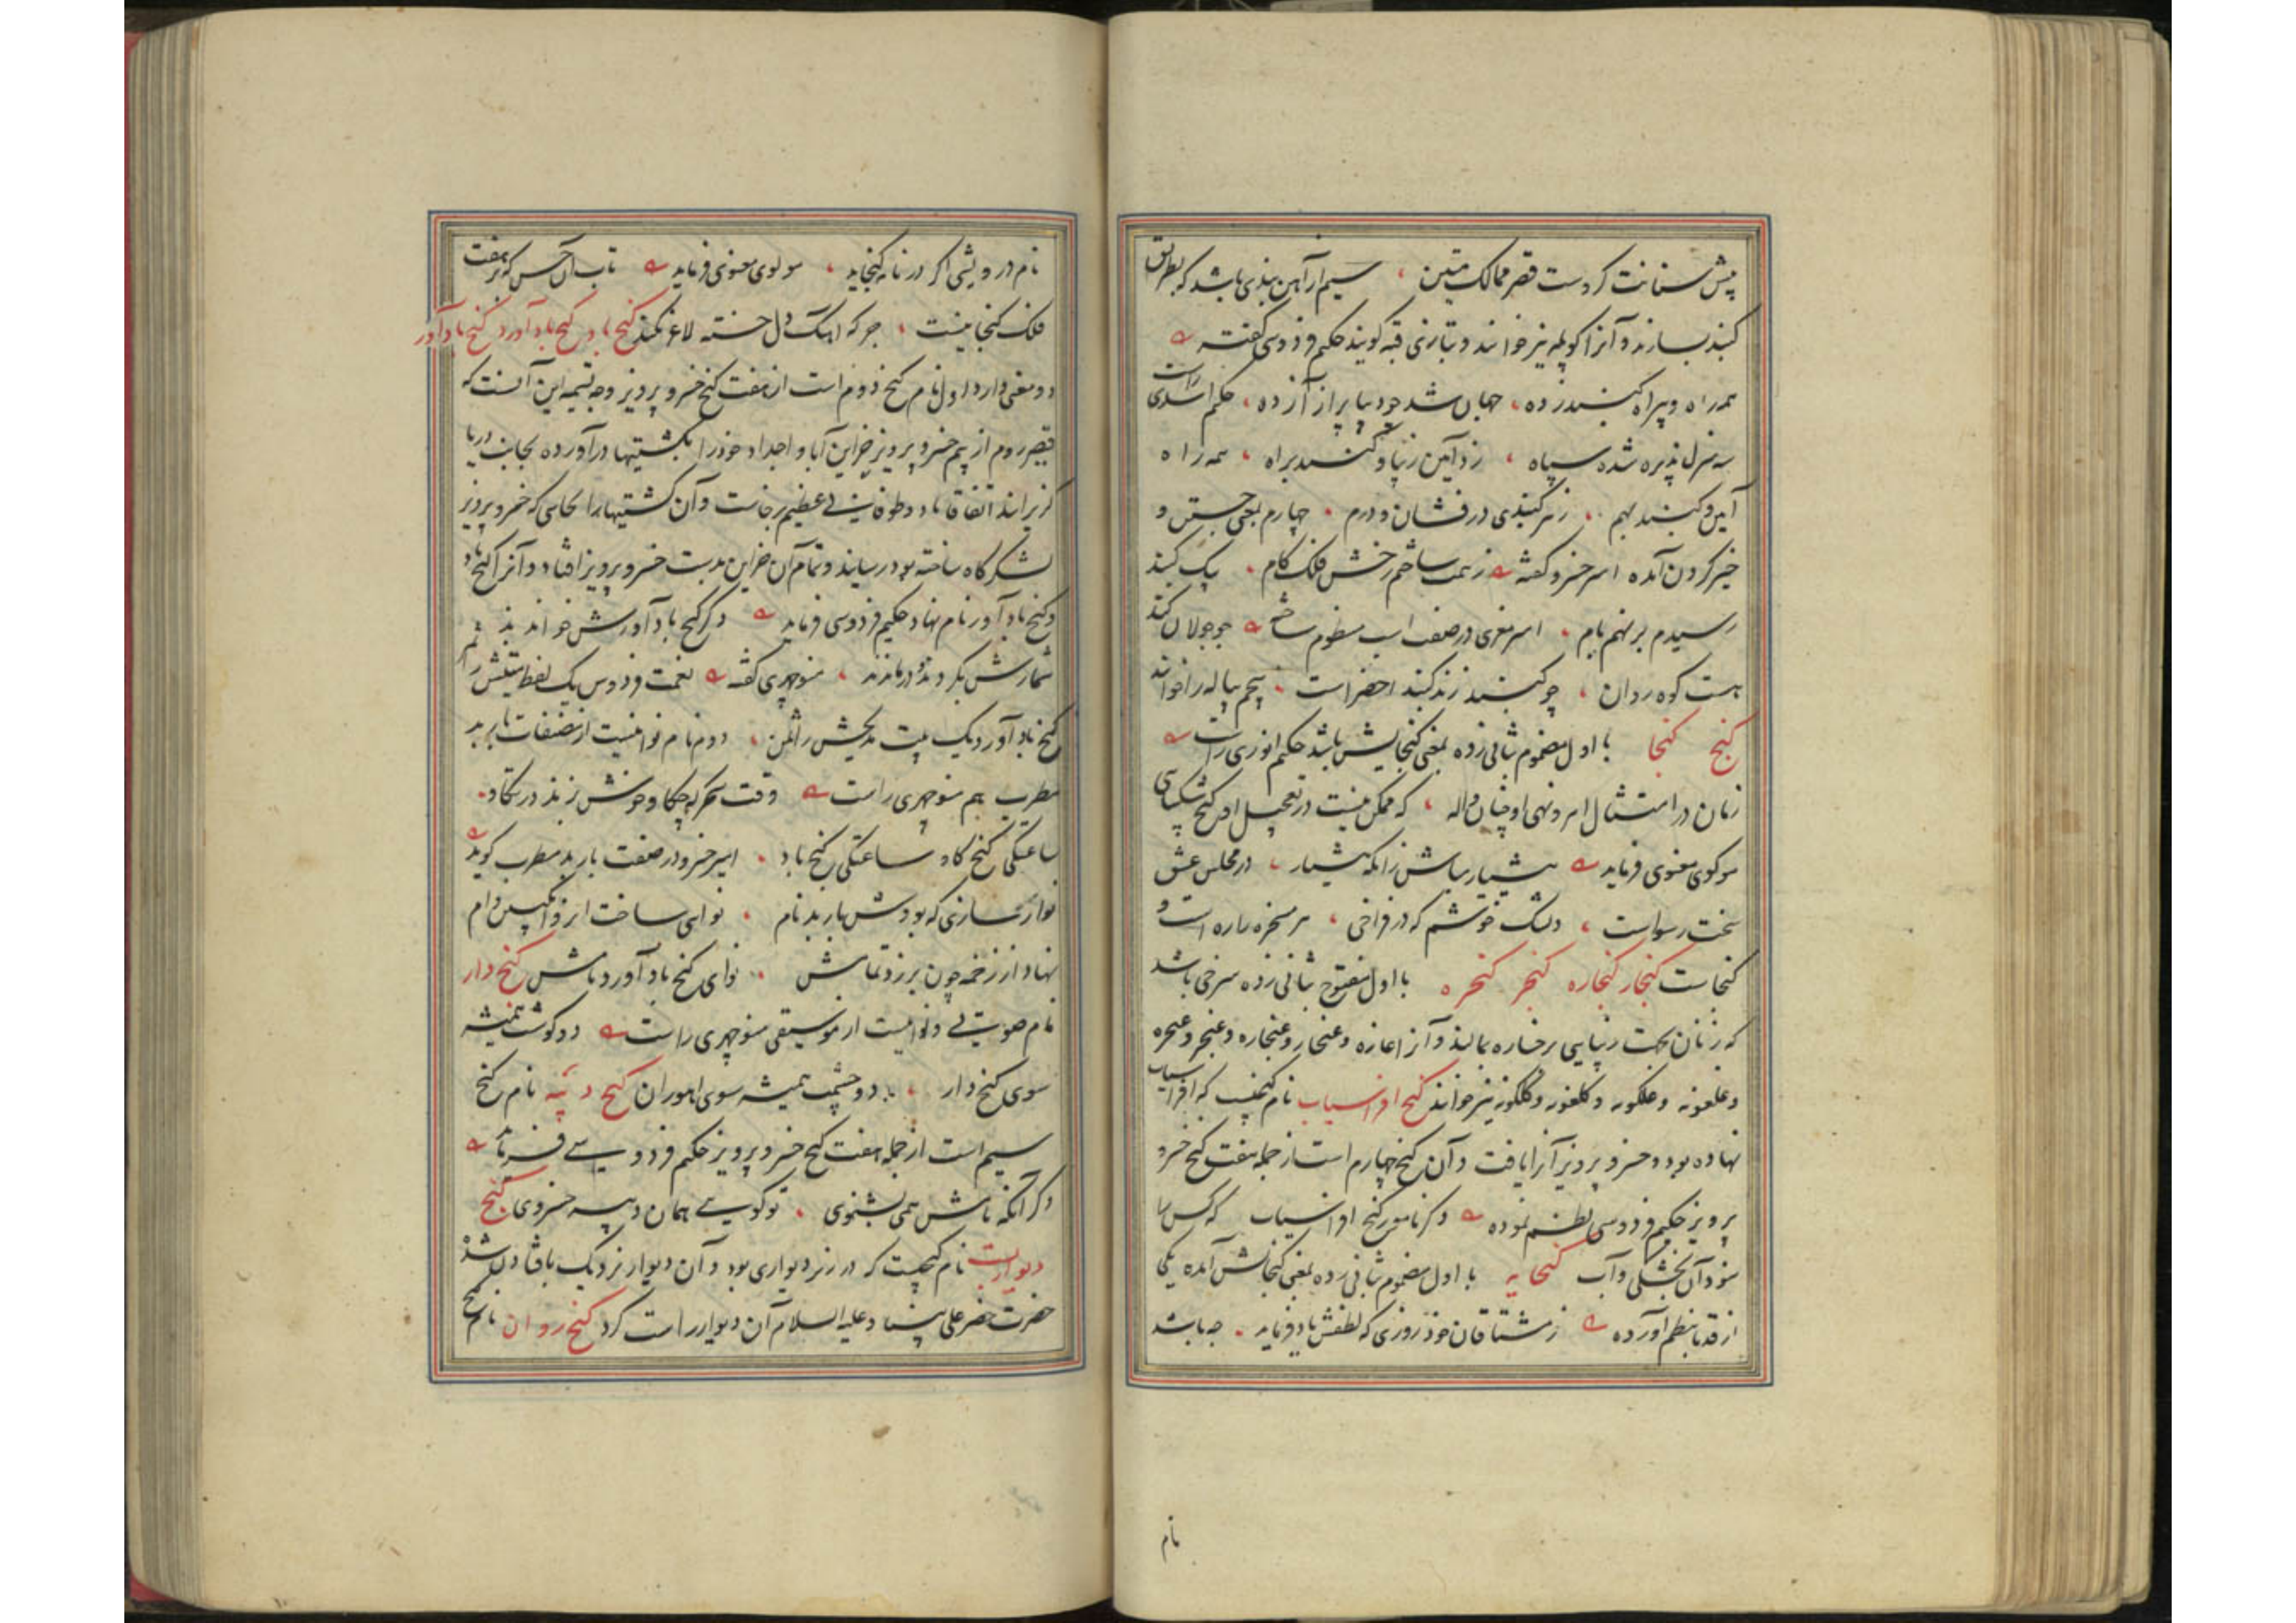 پیش سنانت کردست قصر ممالک متین سیم از آهن بندی باشد که بطریق
کنبد بسازند و آنرا کوپله نیز خوانند و بتازی قبه کویند حکیم فردوسی کفته
همه راه و بیراه کنبد زده جهان شد چو دیبا پر از آزده حکیم اسدی راست
سه منزل پذیره شده سپاه زد آیین زیبا و کنبد براه همه راه
آیین و کنبد بهم ز هر کنبدی درفشان و درم چهارم بمعنی جستن و
خیز کردن آمده امیر خسرو کفته ز همت ساختم رخش فلک کام بیک کنبد
رسیدم بر نهم بام امیر معزی در صفت اسب منظوم ساخته چو جولان کند
هست کوه روان چو کنبد زند کنبد اخضر است پنجم پیاله را خوانند
کنج کنجا با اول مضموم بثانی زده بمعنی کنجایش باشد حکیم انوری راست
زمان در امتثال امر و نهی او چنان واله که ممکن نیست در تعجیل او کنج شکیبایی
مولوی معنوی فرماید هشیار مباش زانکه هشیار در مجلس عشق
سخت رسواست دلتنک خوشم که در فراخی هر مسخره را ره است و
کنجاست کنجار کنجاره کنجر کنجره با اول مفتوح بثانی زده سرخی باشد
که زنان بجهت زیبایی بر رخساره بمالند و آنرا غازه و غنجار و غنجاره و غنجر و غنجره
و غلغونه و هلکونه و کلغونه و کلکونه نیز خوانند کنج افراسیاب نام کنجیست که افراسیاب
نهاده بود و خسرو پرویز آنرا یافت و آن کنج چهارم است از جمله هفت کنج خسرو
پرویز حکیم فردوسی نظم نموده دکر نامور کنج افراسیاب که کس را
نبود آن بخشکی و آب کنجایه با اول مضموم بثانی زده بمعنی کنجایش آمده یکی
از قدما بنظم آورده ز مشتاقان خود روزی که لطفش یاد فرماید چه باشد
نام
نام درویشی اکر در نامه کنجاید مولوی معنوی فرماید تاب آن حسن که در هفت
فلک کنجا نیست جز که آهنک دل خسته لاغر نکند کنج باد کنج بادآورد کنج بادآور
دو معنی دارد اول نام کنج دوم است از هفت کنج خسرو پرویز وجه تسمیه این آنست که
قیصر روم از بیم خسرو پرویز خزاین آبا و اجداد خود را بکشتیها درآورده بجانب دریا
کریزانید اتفاقا باد و طوفانی عظیم برخاست و آن کشتیها را بجایی که خسرو پرویز
لشکرکاه ساخته بود رسانید و تمام آن خزاین بدست خسرو پرویز افتاد و آنرا کنج باد
و کنج بادآور نام نهاد حکیم فردوسی فرماید دکر کنج بادآورش خواندند
شمارش بکردند و درماندند منوچهری کفته نعمت فردوس یک لفظ متینش را ثمر
کنج بادآورد یک بیت مدیحش را ثمن دوم نام نواییست از مصنفات باربد
مطرب هم منوچهری راست وقت سحرکه چکاو خوش بزند در تکاو
ساعتکی کنج کاو ساعتکی کنج باد امیر خسرو در صفت باربد مطرب کوید
نواز سازی که بودش باربد نام نوایی ساخت از انکبین وام
نهاد از زخمه چون بر زد تمامش نوای کنج بادآورد نامش کنج دار
نام صوتی و نواییست از موسیقی منوچهری راست دو کوشت همیشه
سوی کنج دار دو چشمت همیشه سوی اهوران کنج دیبه نام کنج
سیم است از جمله هفت کنج خسرو پرویز حکیم فردوسی فرماید
دکر آنکه نامش همی بشنوی تو کویی همان دیبه خسروی کنج
دیوار بست نام کنجیست که در زیر دیواری بود و آن دیوار نزدیک بافتادن شده
حضرت خضر علی نبینا و علیه السلام آن دیوار راست کرد کنج روان نام کنج